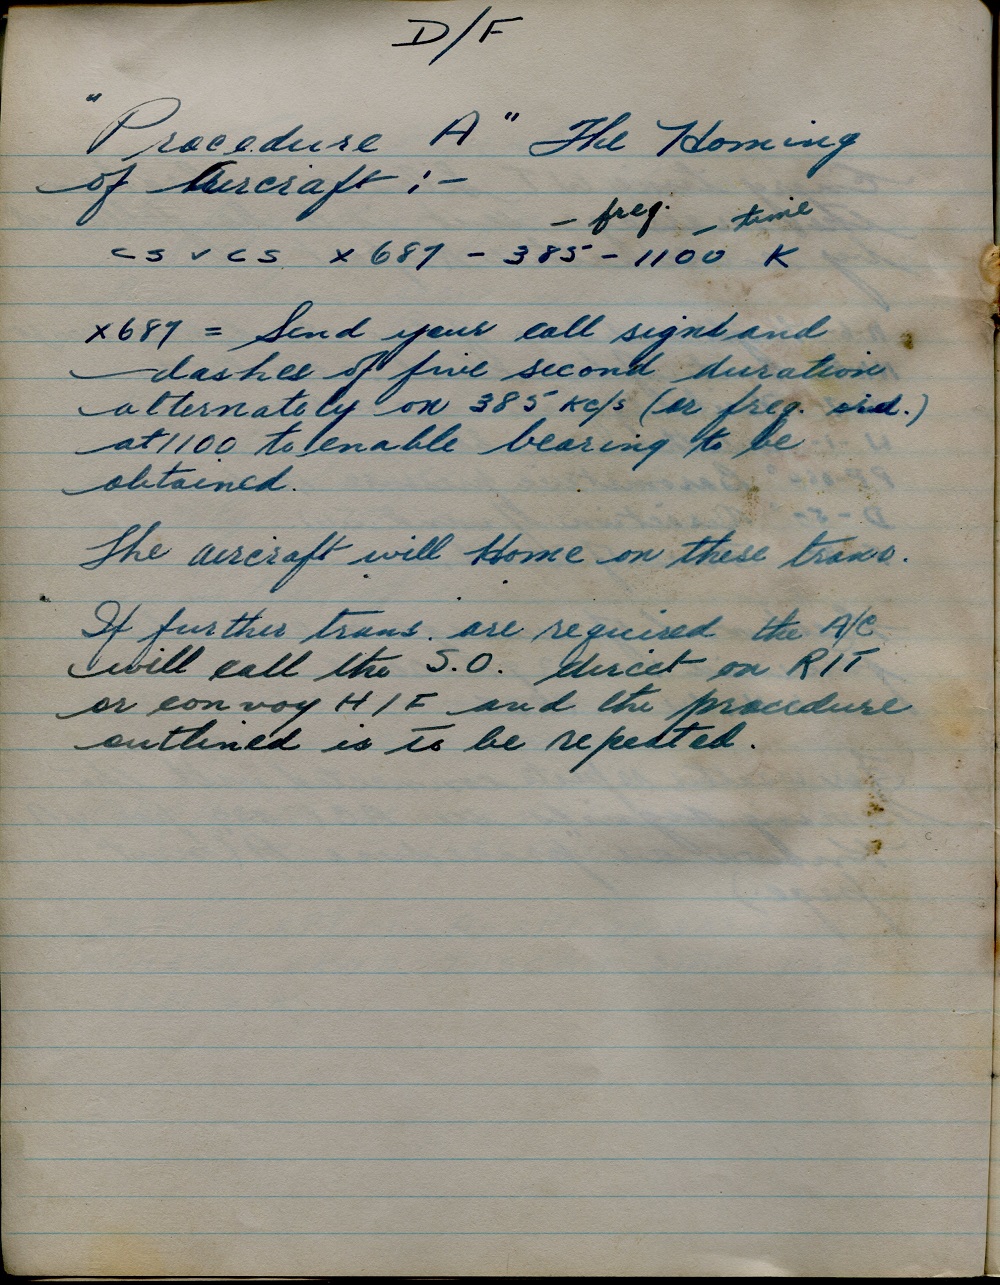 D/F
"Procedure A" The Homing
of Aircraft :-
- freq. - time
CS V CS X687 - 385 - 1100 K
X687 = Send your call sign and
dashes of five second duration
alternately on 385 Kc/s (or freq. ord.)
at 1100 to enable bearing to be
obtained.
The aircraft will Home on these trans.
If further trans. are required the A/C
will call the S.O. direct on R/T
or convoy H/F and the procedure
outlined is to be repeated.